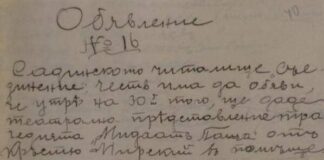 Обявление
№ 16
Садинското читалище "Съе
динение" честь има да обяви,
че утрѣ на 30й того, ще даде
театрално прѣдставление тра
гедията "Мидаатъ Паша" отъ
Кръстю Мирский въ помѣще